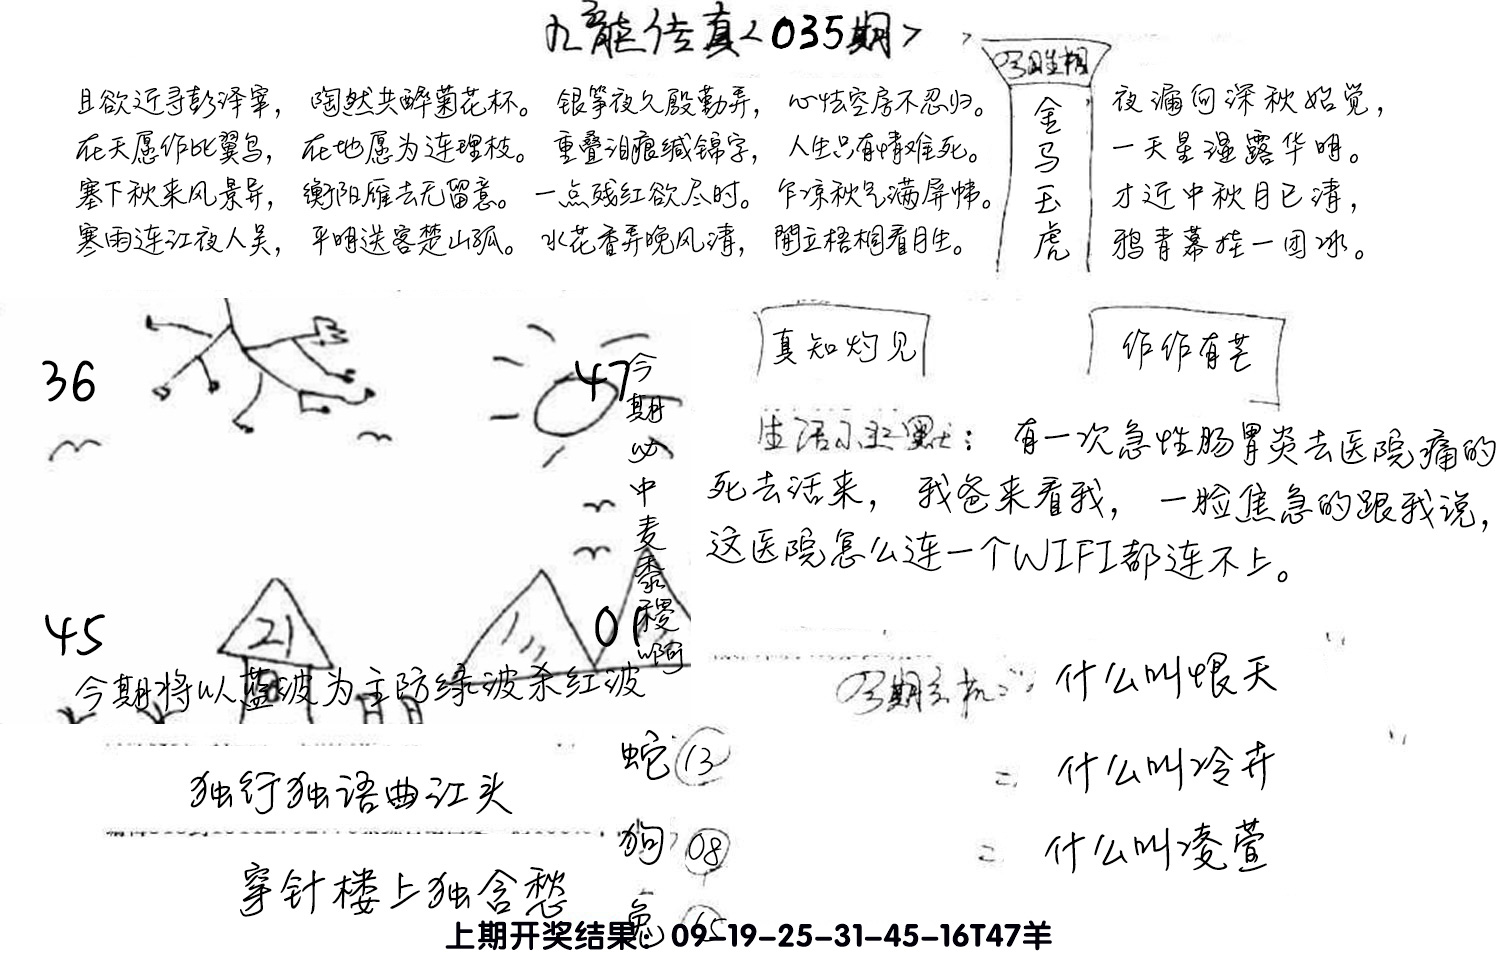 九龙传真<035期>
今期生相
金马玉虎
且欲近寻彭泽宰，陶然共醉菊花杯。银筝夜久殷勤弄，心怯空房不忍归。
在天愿作比翼鸟，在地愿为连理枝。重叠泪痕缄锦字，人生只有情难死。
塞下秋来风景异，衡阳雁去无留意。一点残红欲尽时。乍凉秋气满屏帏。
寒雨连江夜入吴，平明送客楚山孤。水花香弄晚风清，閒立梧桐看月生。
夜漏向深秋始觉，
一天星湿露华明。
才近中秋月已清，
鸦青幕挂一团冰。
36
47
45
21
01
今期必中麦黍稷啊
今期将以蓝波为主防绿波杀红波
真知灼见
作作有芒
生活小幽默：有一次急性肠胃炎去医院痛的
死去活来，我爸来看我，一脸焦急的跟我说，
这医院怎么连一个WIFI都连不上。
今期玄机：什么叫恨天
= 什么叫冷卉
= 什么叫凌萱
独行独语曲江头
穿针楼上独含愁
蛇 13
狗 08
兔
上期开奖结果：09-19-25-31-45-16T47羊